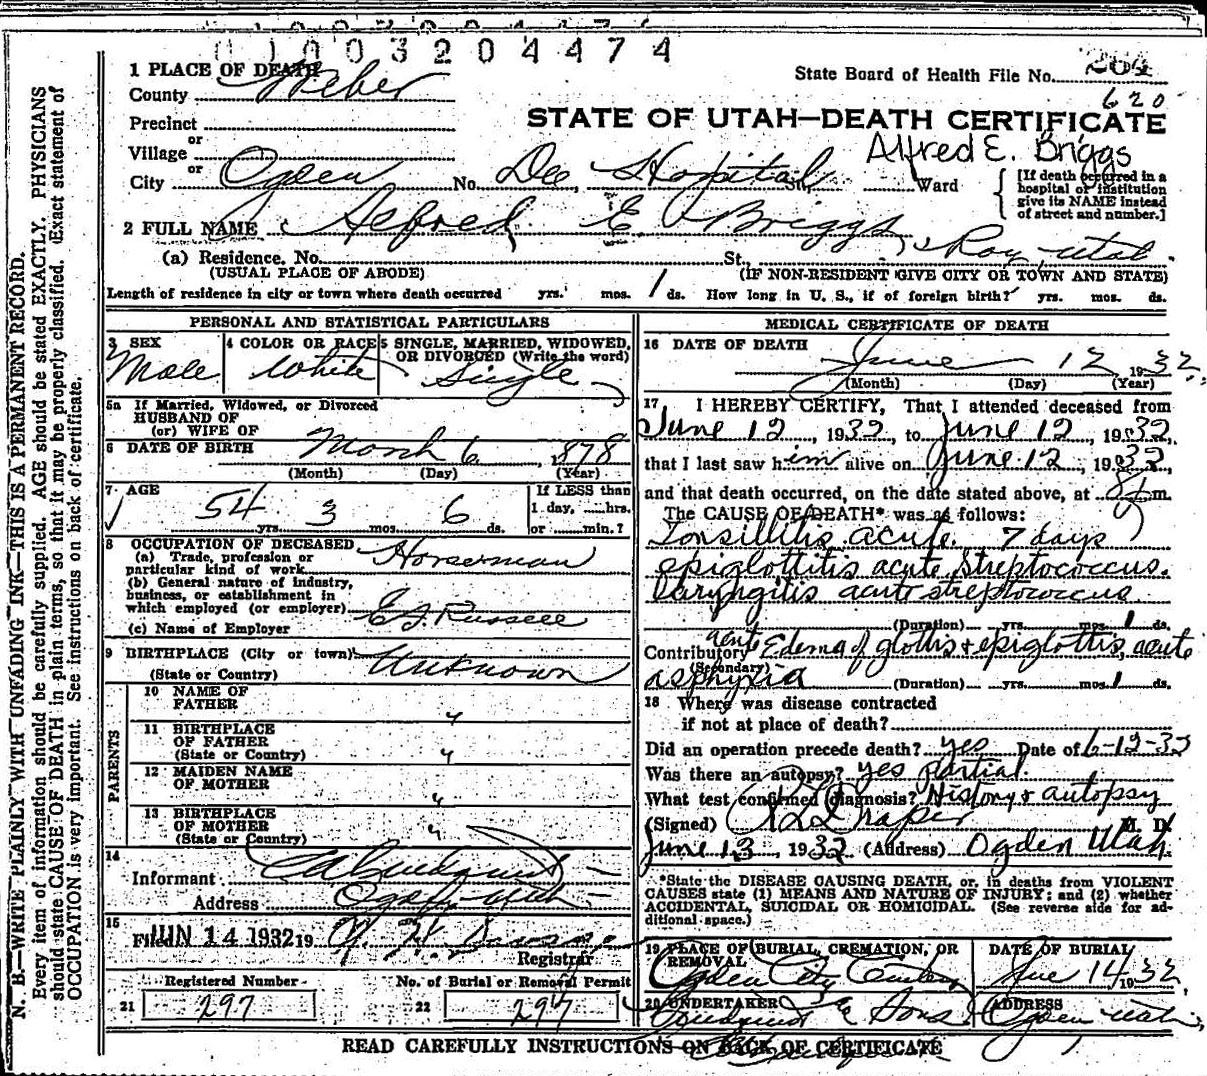 0 1 0 0 3 2 0 4 4 7 4
1 PLACE OF DEATH
State Board of Health File No. 264
County Weber
620
Precinct
STATE OF UTAH—DEATH CERTIFICATE
or
Village
Alfred E. Briggs
or
City Ogden No. Dee Hospital St. Ward
[If death occurred in a hospital or institution give its NAME instead of street and number.]
2 FULL NAME Alfred E. Briggs
(a) Residence. No. St., Roy, Utah.
(USUAL PLACE OF ABODE) (IF NON-RESIDENT GIVE CITY OR TOWN AND STATE)
Length of residence in city or town where death occurred yrs. mos. 1 ds. How long in U. S., if of foreign birth? yrs. mos. ds.
PERSONAL AND STATISTICAL PARTICULARS
3 SEX
Male
4 COLOR OR RACE
White
5 SINGLE, MARRIED, WIDOWED,
OR DIVORCED (Write the word)
Single
5a If Married, Widowed, or Divorced
HUSBAND OF
(or) WIFE OF
6 DATE OF BIRTH March 6, 1878
(Month) (Day) (Year)
7 AGE
54 yrs. 3 mos. 6 ds.
If LESS than
1 day, hrs.
or min.?
8 OCCUPATION OF DECEASED
(a) Trade, profession or
particular kind of work Horseman
(b) General nature of industry,
business, or establishment in
which employed (or employer) E J Russell
(c) Name of Employer
9 BIRTHPLACE (City or town)
(State or Country) Unknown
PARENTS
10 NAME OF
FATHER "
11 BIRTHPLACE
OF FATHER
(State or Country) "
12 MAIDEN NAME
OF MOTHER "
13 BIRTHPLACE
OF MOTHER
(State or Country) "
14
Informant
Address Ogden Utah
15
Filed JUN 14 1932 19
Registrar
Registered Number
21 297
No. of Burial or Removal Permit
22 297
MEDICAL CERTIFICATE OF DEATH
16 DATE OF DEATH
June 12, 1932
(Month) (Day) (Year)
17 I HEREBY CERTIFY, That I attended deceased from
June 12, 1932, to June 12, 1932,
that I last saw him alive on June 12, 1932,
and that death occurred, on the date stated above, at m.
The CAUSE OF DEATH* was as follows:
Tonsillitis acute. 7 days
epiglottitis acute Streptococcus.
Laryngitis acute streptococcus
(Duration) yrs. mos. 1 ds.
Contributory acute Edema of glottis & epiglottis, acute
(Secondary)
asphyxia (Duration) yrs. mos. 1 ds.
18 Where was disease contracted
if not at place of death?
Did an operation precede death? yes Date of 6-12-32
Was there an autopsy? yes partial.
What test confirmed diagnosis? History & autopsy
(Signed) Draper M. D.
June 13, 1932 (Address) Ogden Utah.
*State the DISEASE CAUSING DEATH, or, in deaths from VIOLENT
CAUSES state (1) MEANS AND NATURE OF INJURY; and (2) whether
ACCIDENTAL, SUICIDAL OR HOMICIDAL. (See reverse side for ad-
ditional space.)
19 PLACE OF BURIAL, CREMATION, OR
REMOVAL
Ogden City Cemetery
DATE OF BURIAL
June 14, 1932
20 UNDERTAKER
Lindquist & Sons
ADDRESS
Ogden Utah
READ CAREFULLY INSTRUCTIONS ON BACK OF CERTIFICATE
N. B.—WRITE PLAINLY WITH UNFADING INK—THIS IS A PERMANENT RECORD.
Every item of information should be carefully supplied. AGE should be stated EXACTLY. PHYSICIANS
should state CAUSE OF DEATH in plain terms, so that it may be properly classified. Exact statement of
OCCUPATION is very important. See instructions on back of certificate.